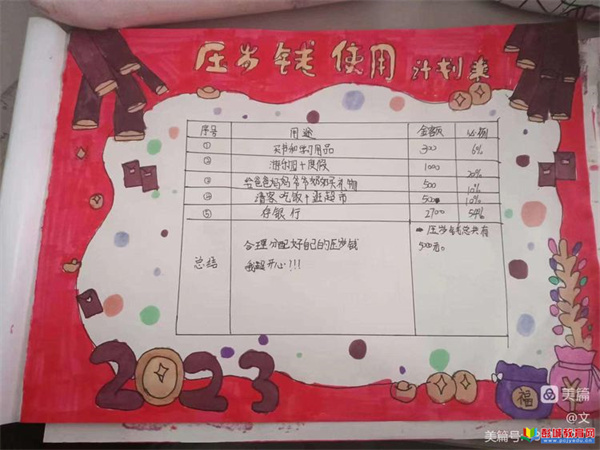 压岁钱使用计划表
序号 用途 金额 比例
① 买书和学习用品 300 6%
② 游乐园+度假 1000 20%
③ 给爸爸妈妈爷爷奶奶买礼物 500 10%
④ 请客吃饭+逛超市 500 10%
⑤ 存银行 2700 54%
总结
合理分配好自己的压岁钱
我超开心!!!
压岁钱总共有
5000元。
2023
福
美篇
@文
美篇号
www.pnjyedu.cn